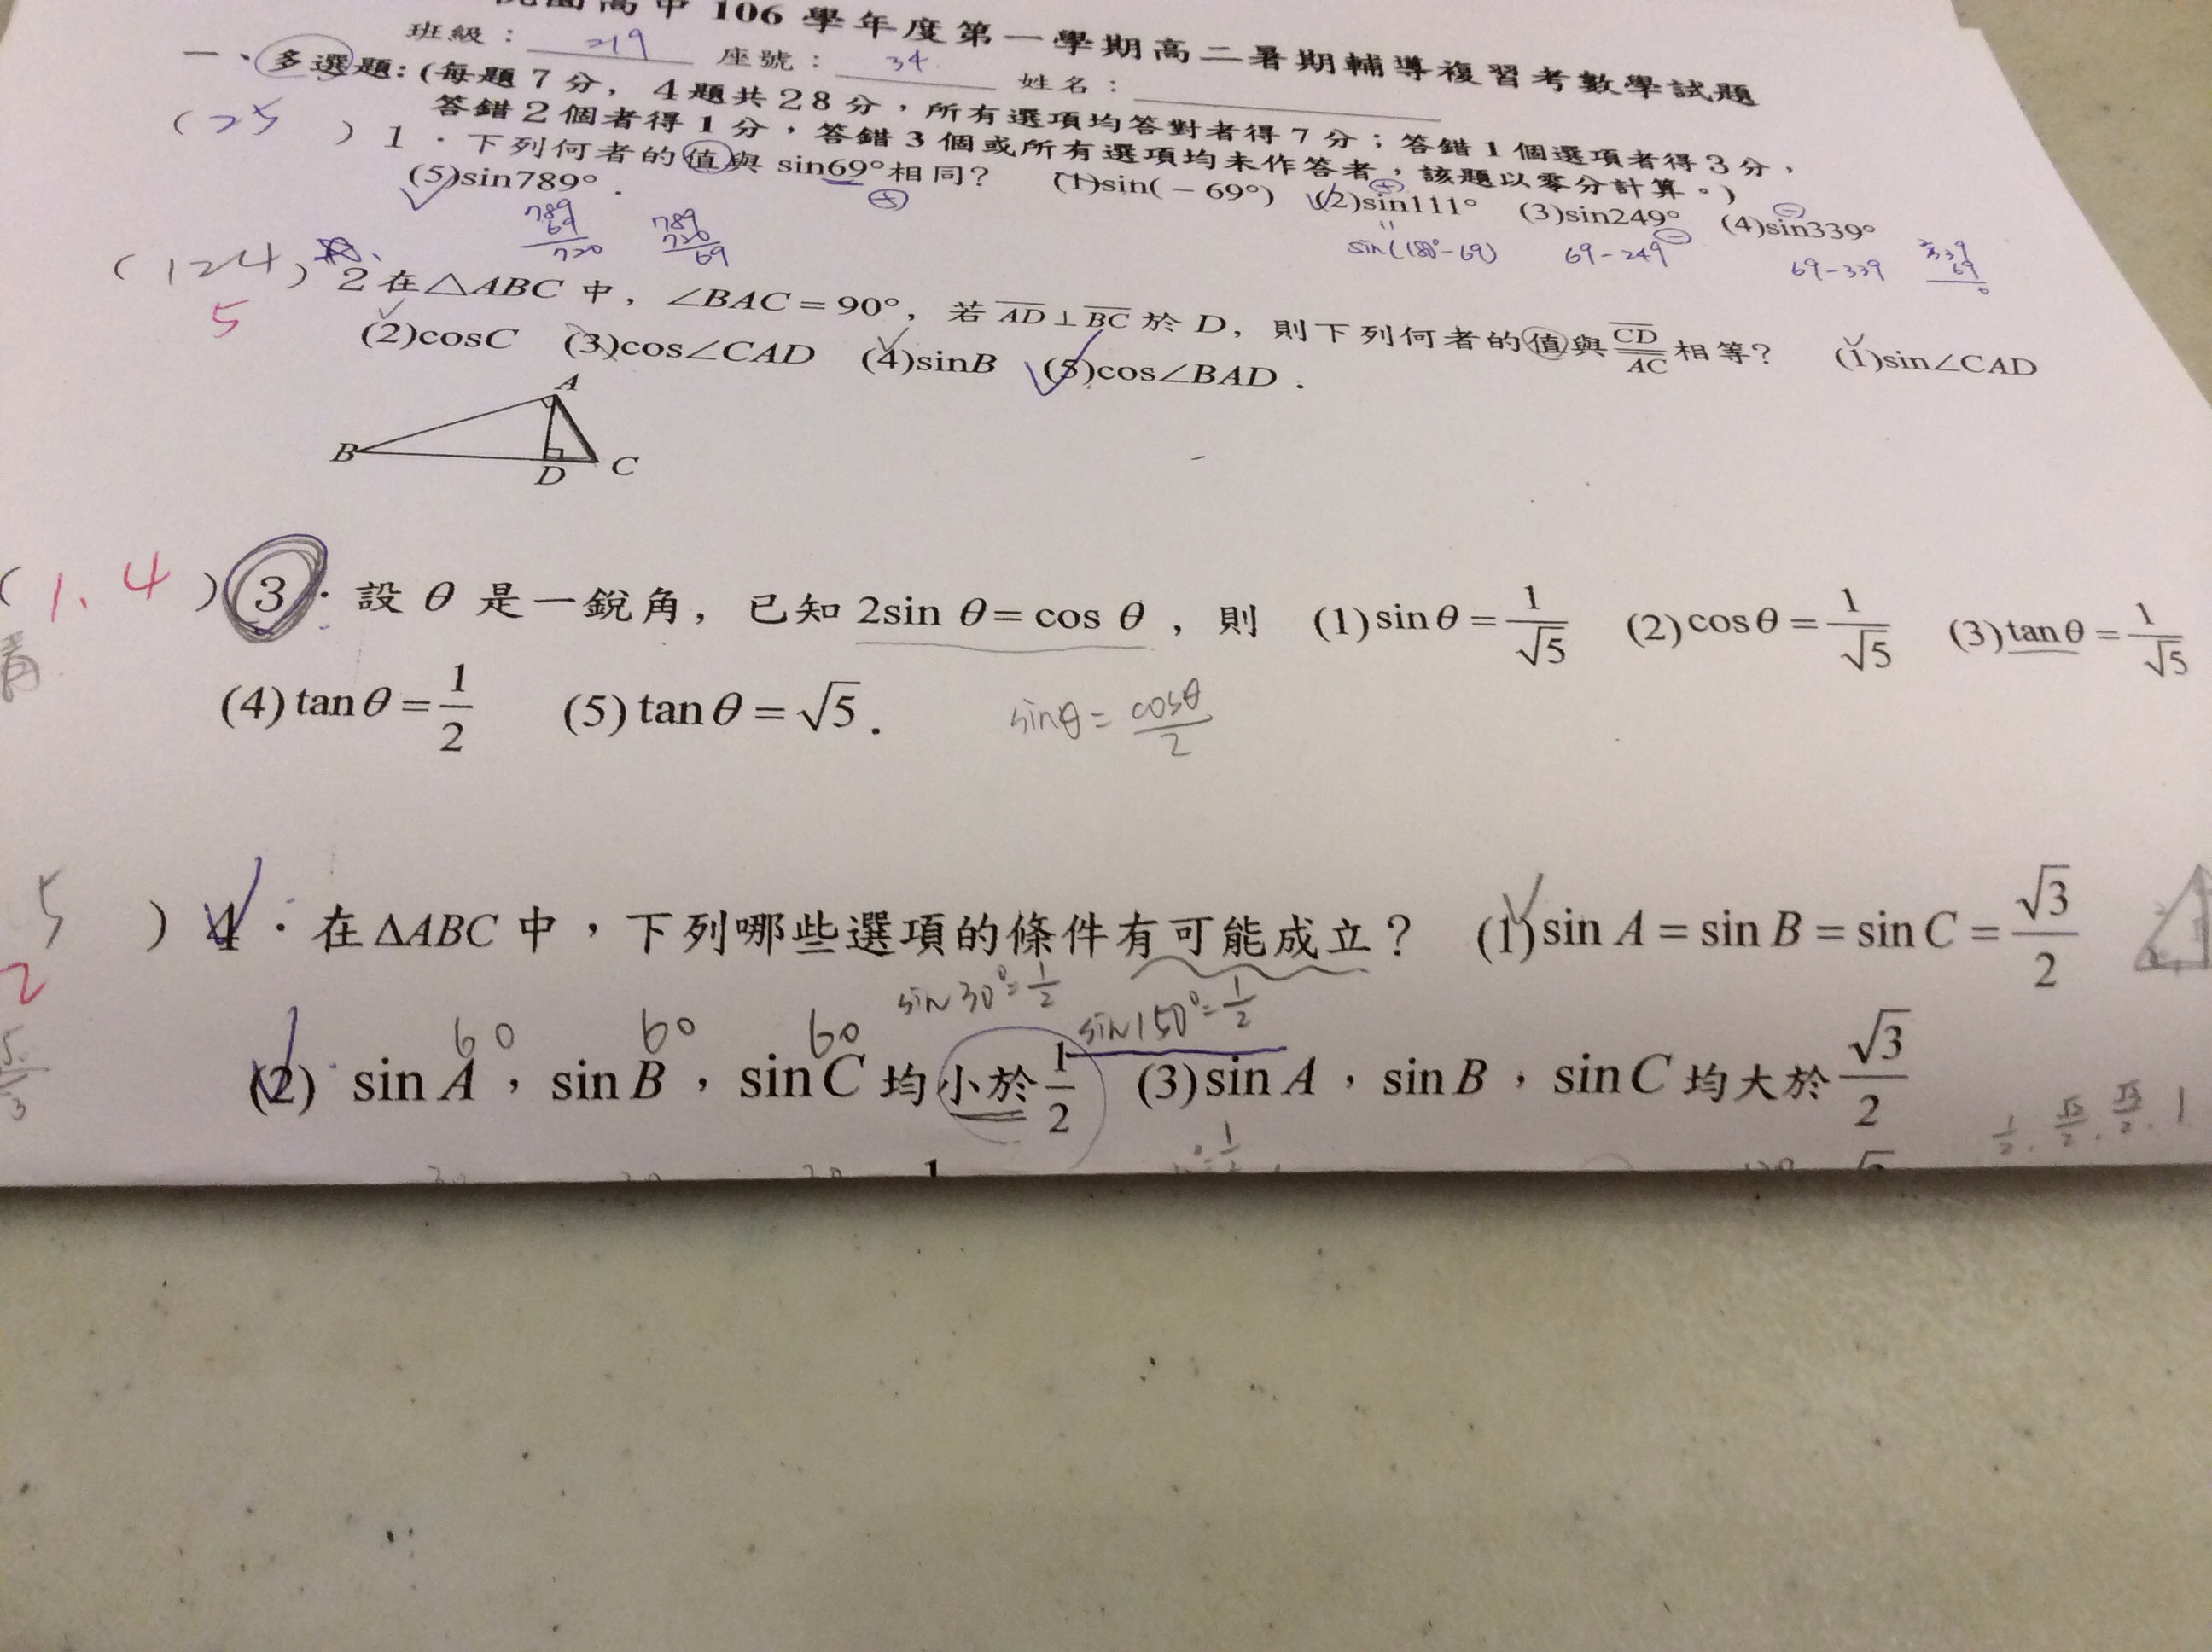 高中 106 學年度第一學期高二暑期輔導複習考數學試題
班級： 219 座號： 34 姓名：
一、多選題：(每題7分，4題共28分，所有選項均答對者得7分；答錯1個選項者得3分，
答錯2個者得1分，答錯3個或所有選項均未作答者，該題以零分計算。)
( 25 ) 1．下列何者的值與 sin69°相同? (1)sin(－69°) (2)sin111° (3)sin249° (4)sin339°
(5)sin789°．
789 69 720
789 720 69
sin(180°-69)
69-249
69-339
339 69
( 124 5 ) 2 在△ABC 中，∠BAC＝90°，若 AD⊥BC 於 D，則下列何者的值與 CD/AC 相等? (1)sin∠CAD
(2)cosC (3)cos∠CAD (4)sinB (5)cos∠BAD．
A
B
D
C
( 1、4 ) 3．設 θ 是一銳角，已知 2sin θ＝cos θ，則 (1)sinθ＝1/√5 (2)cosθ＝1/√5 (3)tanθ＝1/√5
(4)tanθ＝1/2 (5)tanθ＝√5．
sinθ=cosθ/2
5 2
) 4．在ΔABC 中，下列哪些選項的條件有可能成立？ (1)sin A＝sin B＝sin C＝√3/2
sin30°=1/2 sin150°=1/2
60 60 60
(2) sin A，sin B，sin C 均小於1/2 (3)sin A，sin B，sin C 均大於√3/2